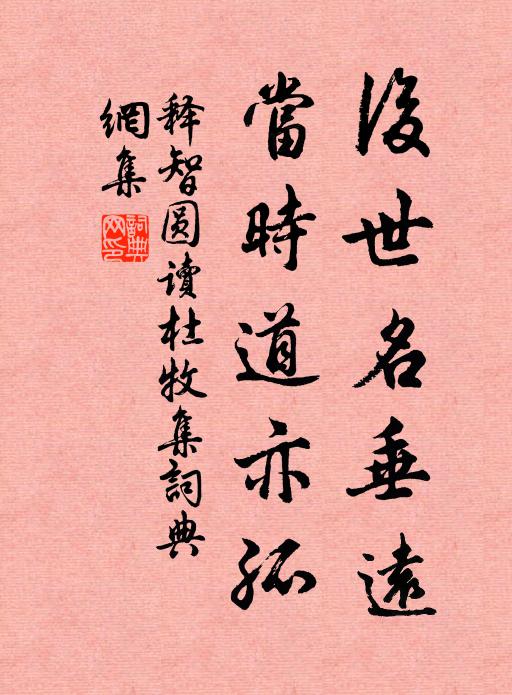 後世名垂遠
當時道亦孤
释智圆讀杜牧集詞典
網集
詞典網印